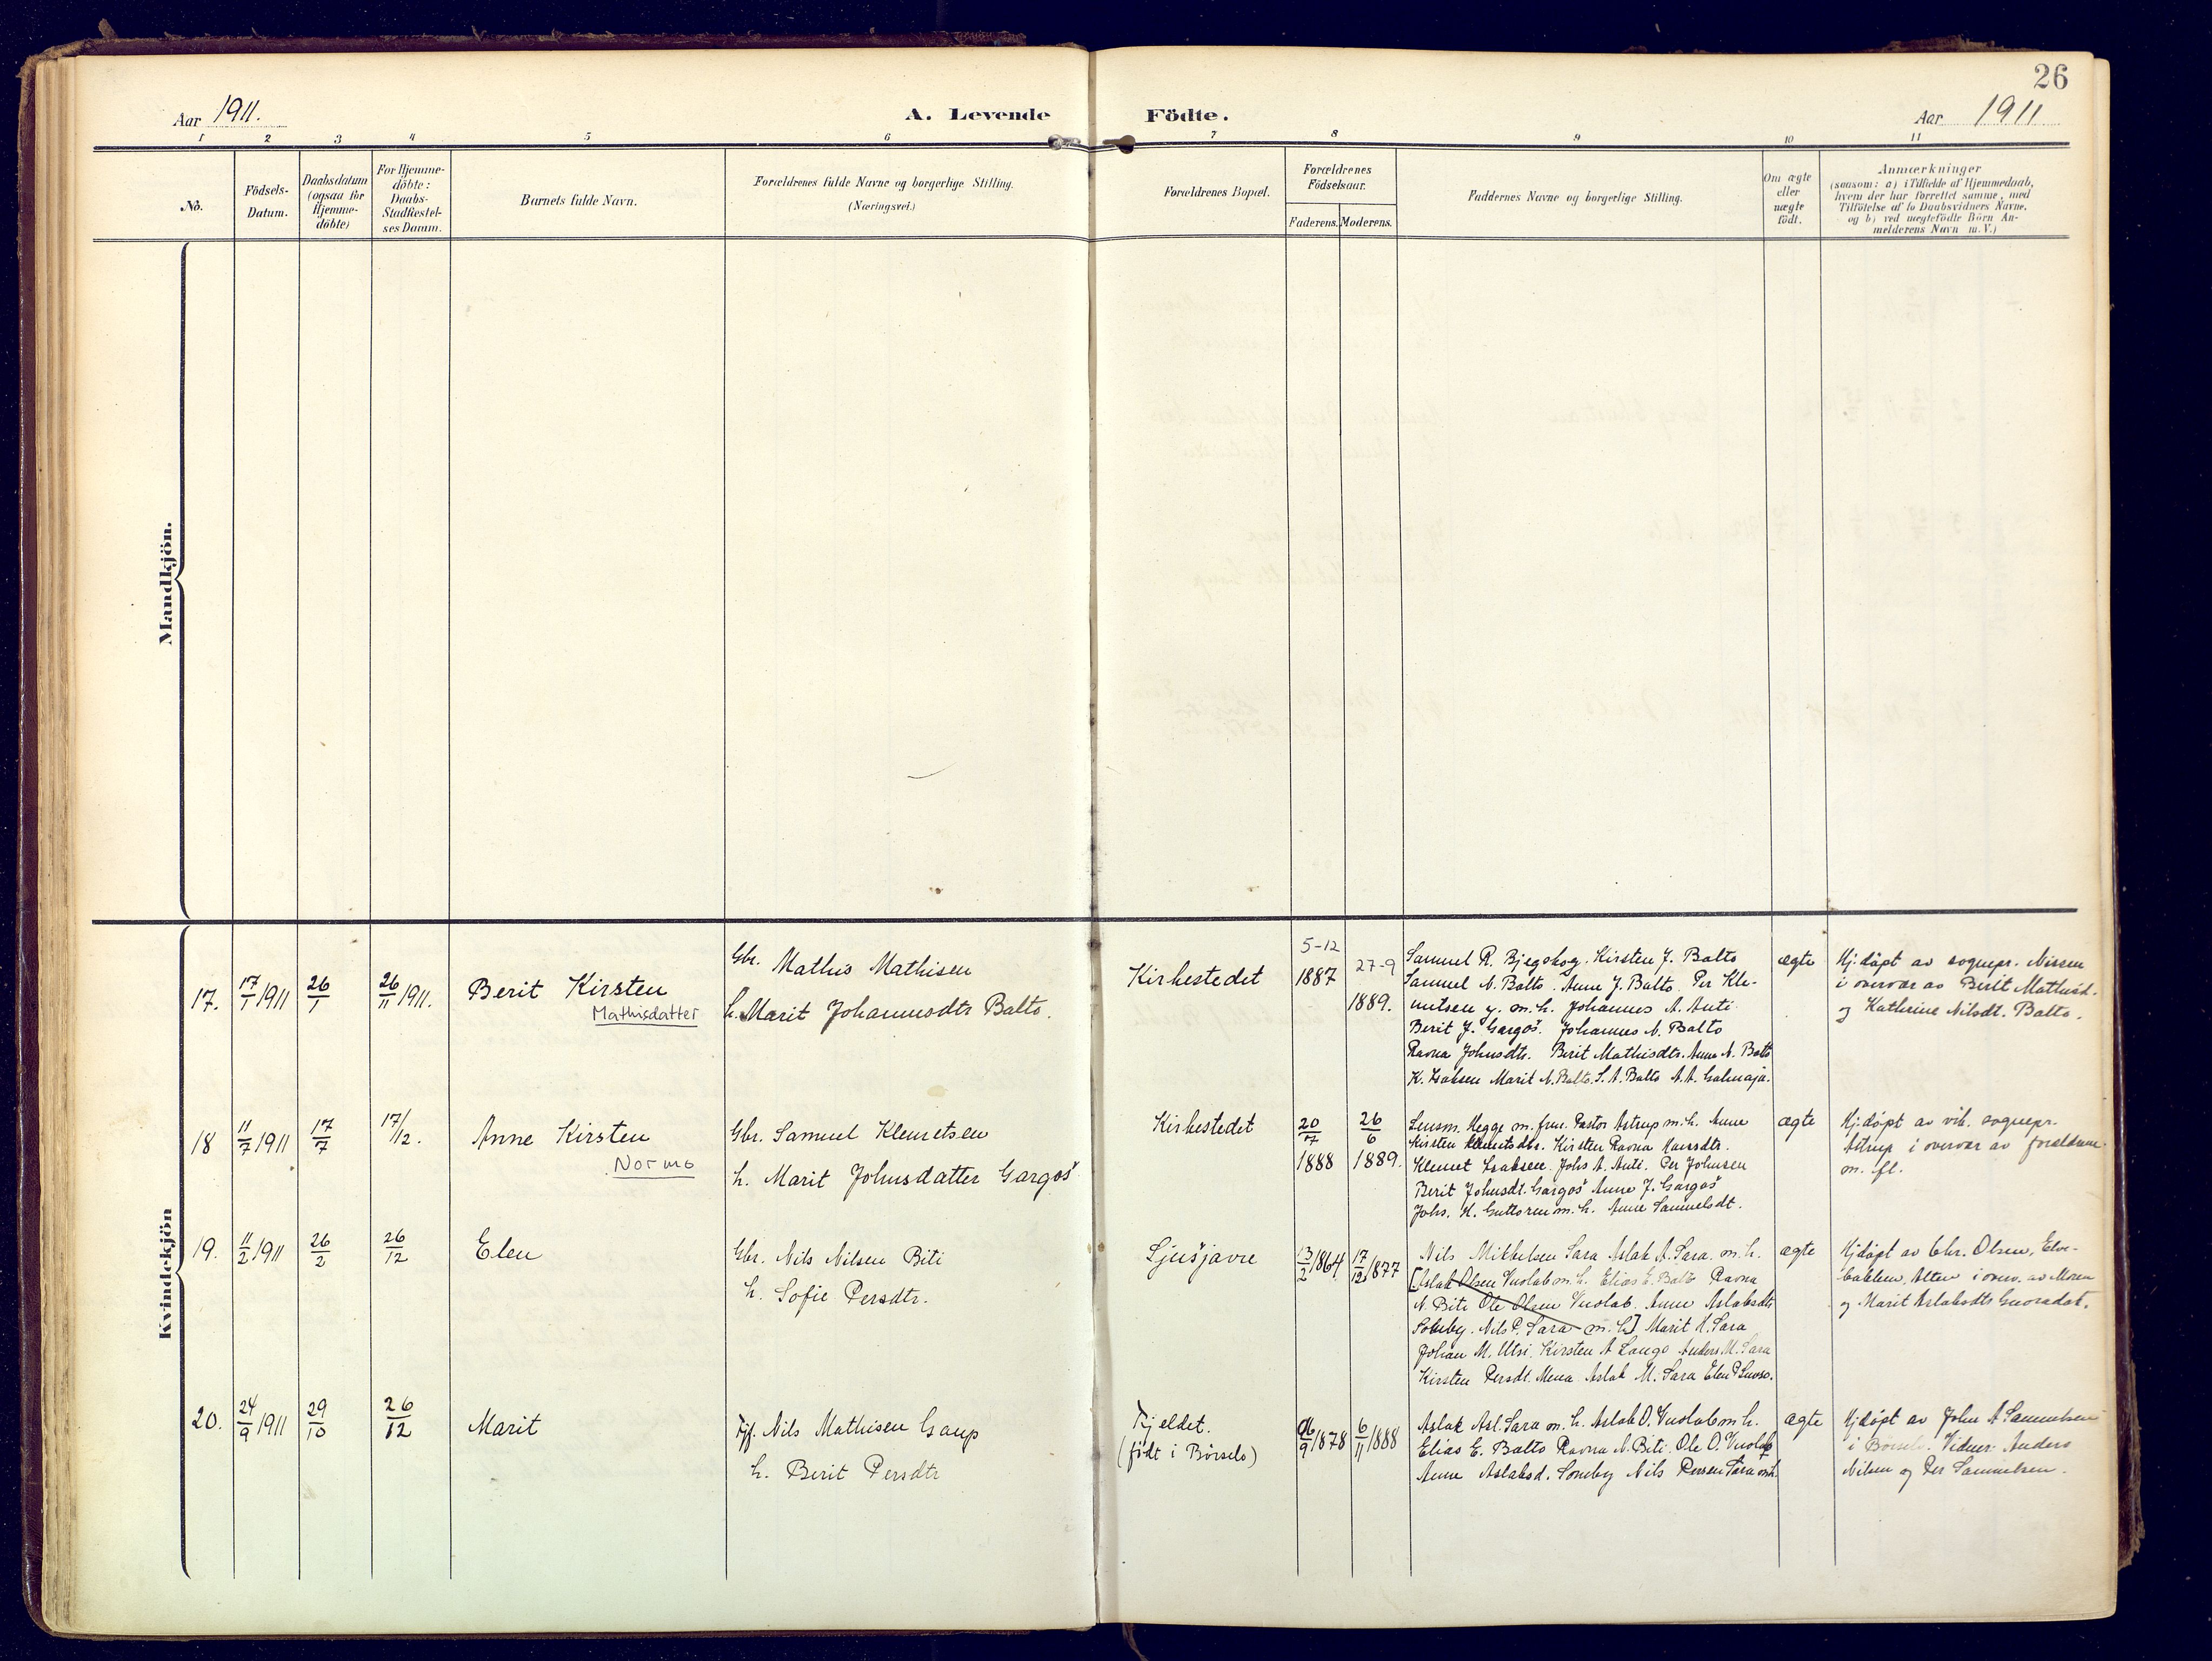 26
Aar 1911.
A. Levende
Födte.
Aar 1911
1 2 3 4 5 6 7 8 9 10 11
No.
Födsels-
Datum.
Daabsdatum
(ogsaa för
Hjemme-
döbte)
For Hjemme-
döbte:
Daabs-
Stadfæstel-
ses Datum.
Barnets fulde Navn.
Forældrenes fulde Navne og borgerlige Stilling.
(Næringsvei.)
Forældrenes Bopæl.
Forældrenes
Födselsaar.
Faderens. Moderens.
Faddernes Navne og borgerlige Stilling.
Om ægte
eller
uægte
födt.
Anmærkninger
(saasom: a) i Tilfælde af Hjemmedaab,
hvem der har forrettet samme, med
Tilföielse af to Daabsvidners Navne.
og b) ved uægtefödte Börn An-
melderens Navn m.V.)
Mandkjön.
Kvindekjön
17. 17/1 1911 26/1 26/11 1911.
Berit Kirsten
Mathisdatter
Gbr. Mathis Mathisen
h. Marit Johannesdtr Balto.
Kirkestedet
5-12
1887
27-9
1889.
Samuel R. Bjegskog. Kirsten J. Balto
Samuel N. Balto. Anne J. Balto. Per Kle-
metsen y. m. h. Johannes A. Anti
Berit J. Gargos̆. Johannes N. Balto
Ravna Johnsdtr. Berit Mathisdtr. Anne N. Balto
K. Isaksen Marit N. Balto. S. A. Balto A. A.
ægte
Hj. døpt av sognepr. Nissen
i overvær av Berit Mathisd.
og Kathrine Nilsdt. Balto.
18 11/7 1911 17/7 17/12.
Anne Kirsten
Normo
Gbr. Samuel Klemetsen
h. Marit Johnsdatter Gargos̆
Kirkestedet
20/7
1888
26/6
1889.
Lensm. Hegge m. frue. Pastor Astrup m. h. Anne
Kirsten Klemetsdtr. Kirsten Ravna Hansdtr.
Klemet Isaksen. Johs A. Anti. Per Johnsen
Berit Johnsdt. Gargos̆ Anne J. Gargos̆
Johs. H. Guttorm m. h. Anne Samuelsdt.
ægte
Hj. døpt av vik. sognepr.
Astrup i overvær av forældrene
m. fl.
19. 11/2 1911 26/2 26/12
Elen
Gbr. Nils Nilsen Biti
h. Sofie Persdtr.
Ljus̆javre
13/2 1864
17/12 1877
Nils Mikkelsen Sara Aslak A. Sara. m. h.
[Aslak Olsen Vuolab m. h. Elias E. Balto Ravna
N. Biti Ole Olsen Vuolab. Anne Aslaksdtr
Somby. Nils P. Sara m. h.] Marit H. Sara
Johan M. Utsi. Kirsten A Lango Anders M. Sara
Kirsten Persdt. Mena Aslak M. Sara Elen P
ægte
Hjdøpt av Chr. Olsen, Elve-
bakken, Alten i overv. av Moren
og Marit Aslaksdtr
20. 24/9 1911 29/10 26/12
Marit
Fjf. Nils Mathisen Gaup
h. Berit Persdtr
Fjeldet.
(født i Børselv)
9 1878
6/11 1888
Aslak Asl. Sara m. h. Aslak O. Vuolab m h.
Elias E. Balto Ravna N. Biti. Ole O. Vuolab
Anne Aslaksd. Somby Nils Persen Sara m h.
ægte
Hjdøpt av John A Samuelsen
i Børselv. Vidner: Anders
Nilsen og Per Samuelsen.